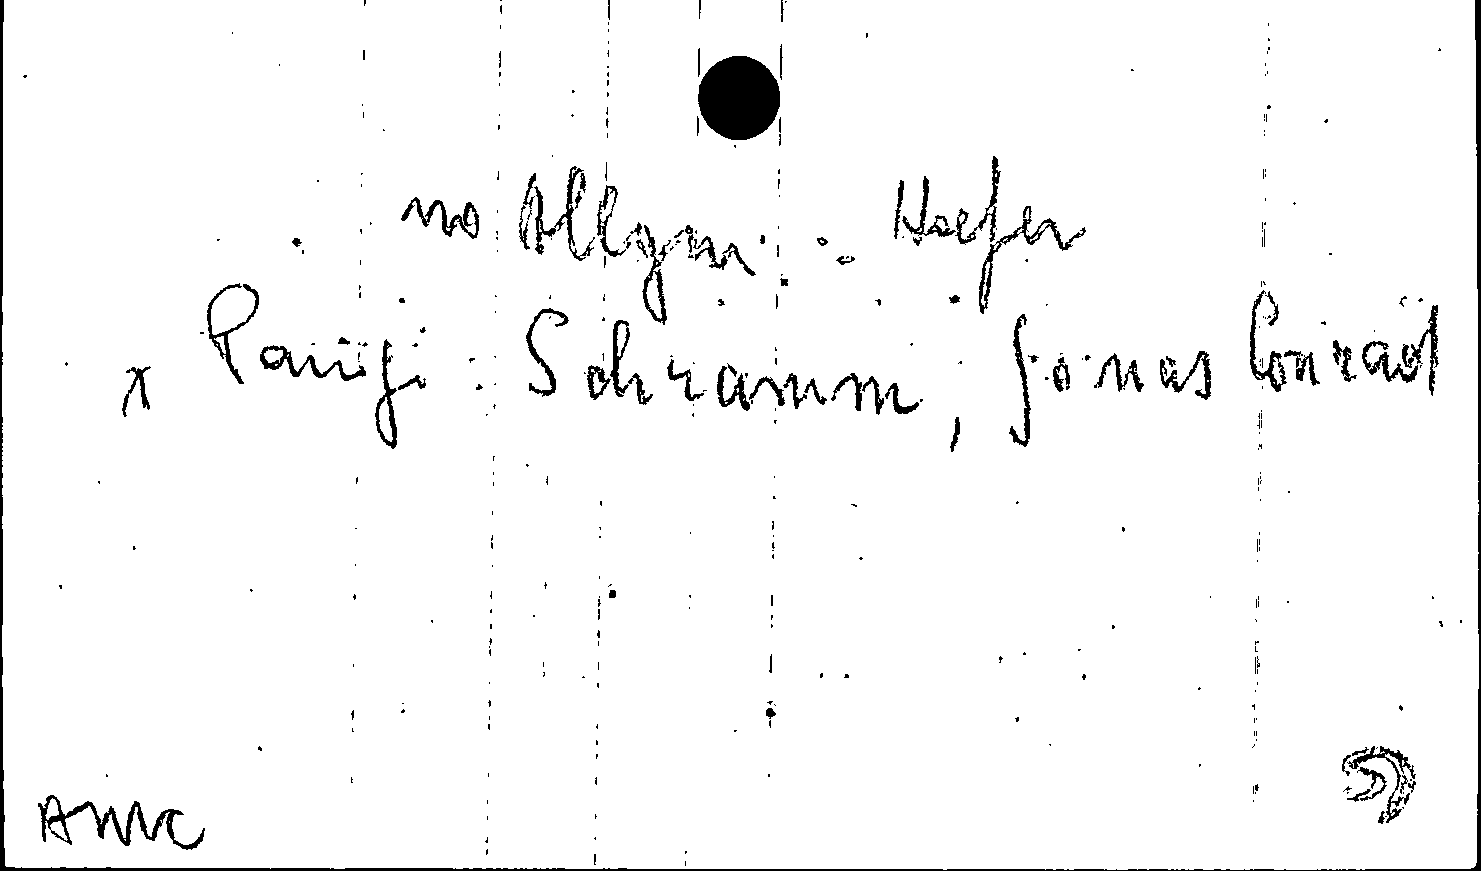 no Allgm. : Hoefer
x Panigi : Schramm, Jonas Conrad
AMC